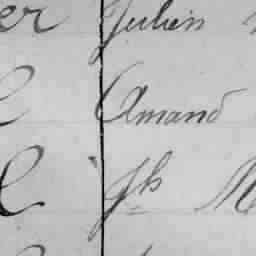 er Julien
Amand
Jh M